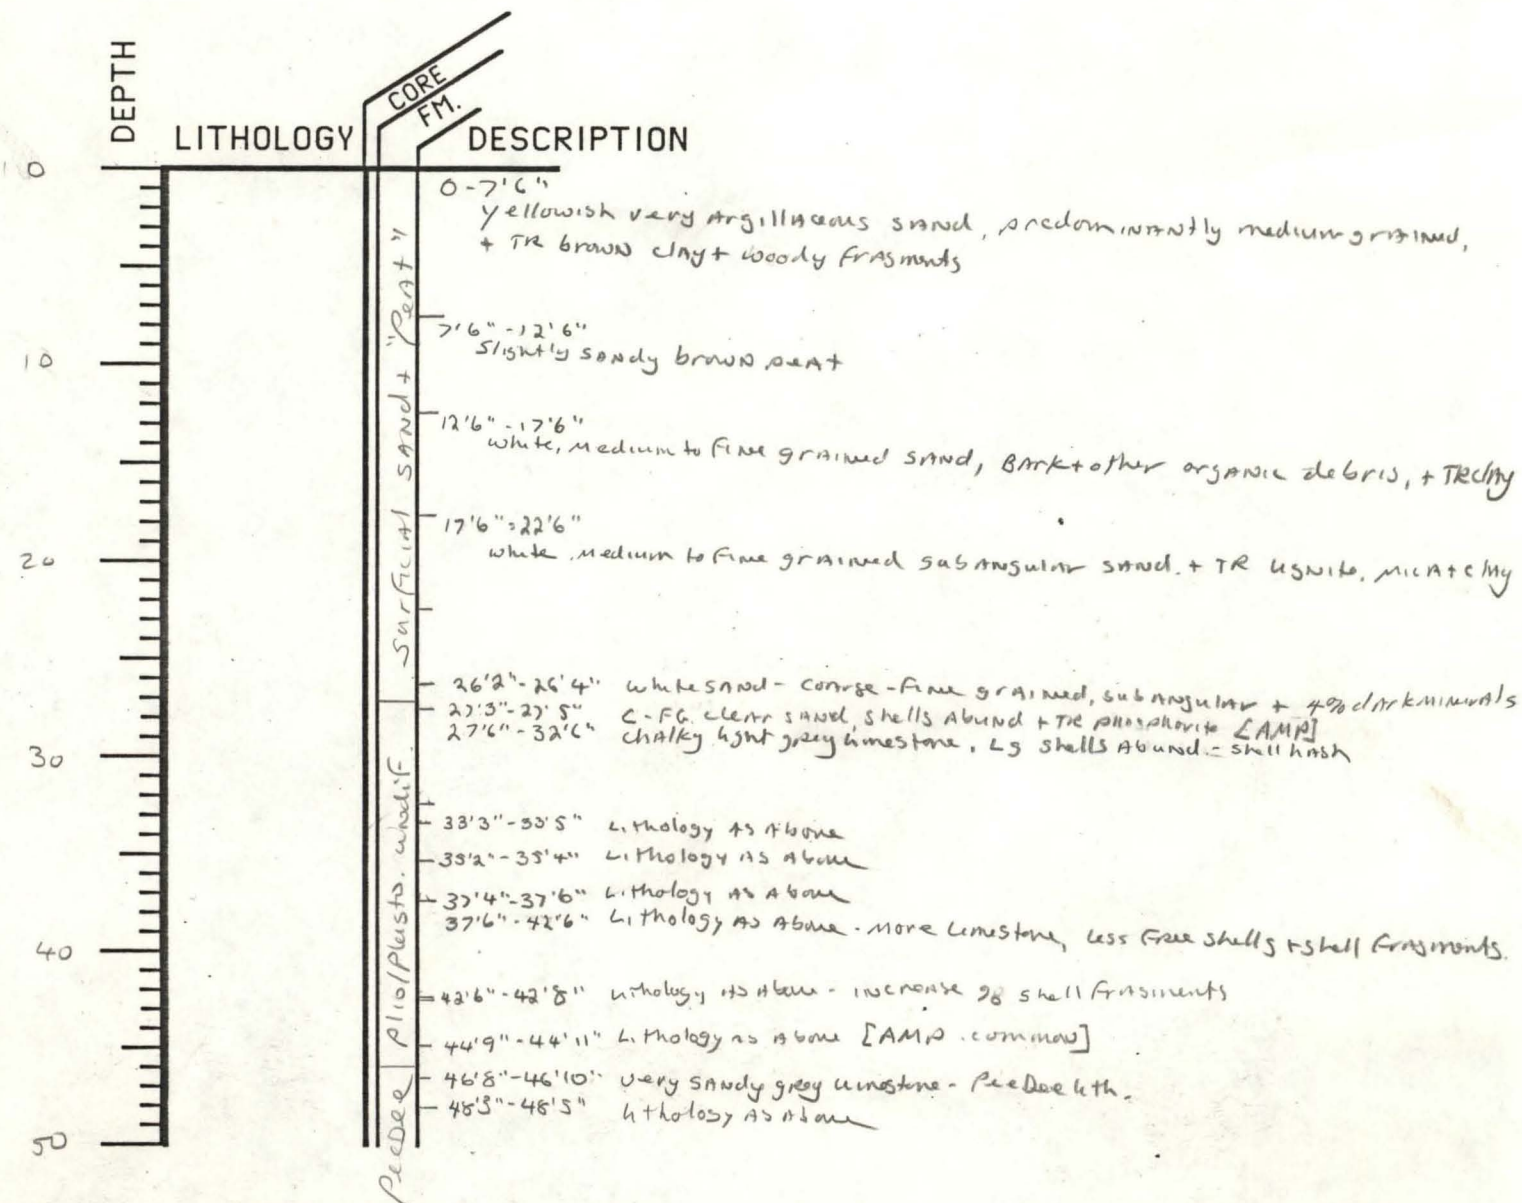 DEPTH
LITHOLOGY
CORE
FM.
DESCRIPTION
0
10
20
30
40
50
Surficial sand + "Peat"
Plio/Pleisto. undif
PeeDee
0-7'6"
Yellowish very Argillaceous sand, predominantly medium grained,
+ TR brown clay + woody fragments
7'6"-12'6"
Slightly sandy brown peat
12'6"-17'6"
White, medium to fine grained sand, Bark + other organic debris, + TR clay
17'6"-22'6"
White medium to fine grained subangular sand. + TR lignite, mica + clay
26'2"-26'4" White sand - coarse-fine grained, subangular + 4% dark minerals
27'3"-27'5" C-FG. clear sand, shells Abund + TR phosphorite [AMP]
27'6"-32'6" chalky light grey limestone, Lg shells Abund. - shell hash
33'3"-33'5" Lithology As Above
35'2"-35'4" Lithology As Above
37'4"-37'6" Lithology As Above
37'6"-42'6" Lithology As Above - More limestone, less free shells + shell fragments.
42'6"-42'8" Lithology As Above - increase % shell fragments
44'9"-44'11" Lithology as Above [AMP. common]
46'8"-46'10" Very sandy grey limestone - PeeDee lith.
48'3"-48'5" lithology As Above